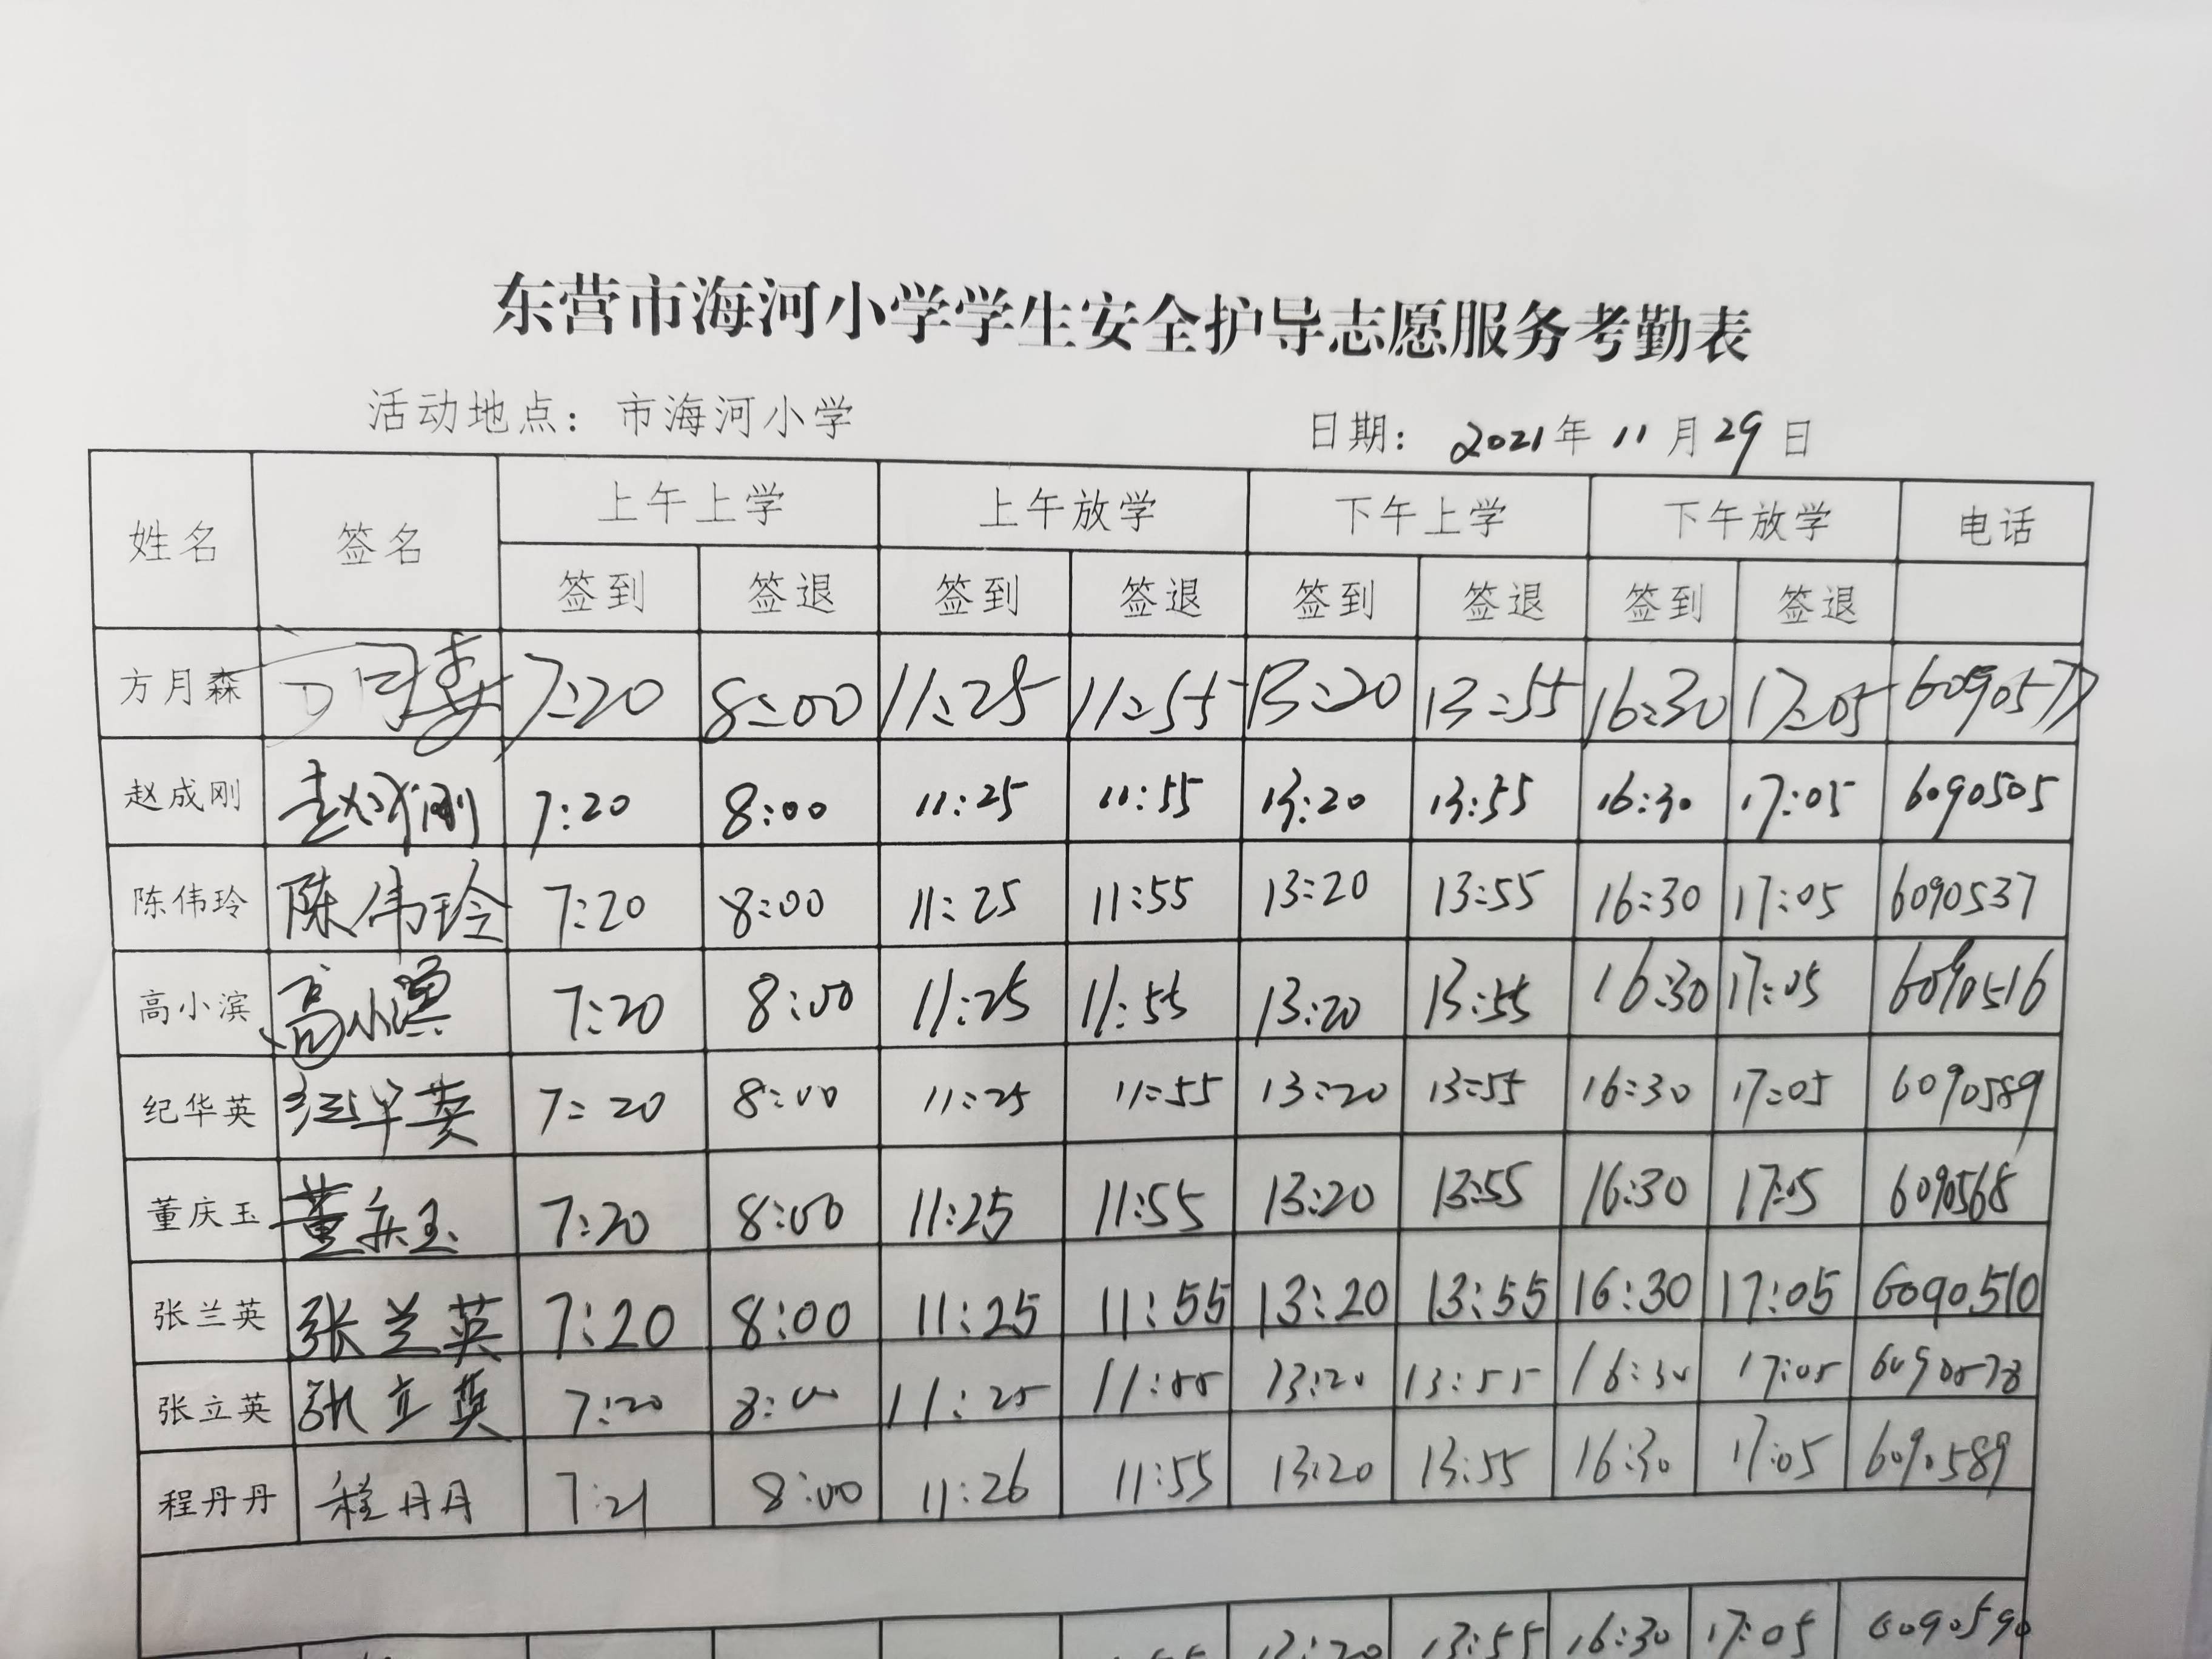 东营市海河小学学生安全护导志愿服务考勤表
活动地点：市海河小学 日期：2021年11月29日
姓名 签名 上午上学 上午放学 下午上学 下午放学 电话
签到 签退 签到 签退 签到 签退 签到 签退
方月森 7:20 8:00 11:25 11:55 13:20 13:55 16:30 17:05 6090577
赵成刚 赵成刚 7:20 8:00 11:25 11:55 13:20 13:55 16:30 17:05 6090505
陈伟玲 陈伟玲 7:20 8:00 11:25 11:55 13:20 13:55 16:30 17:05 6090537
高小滨 高小滨 7:20 8:00 11:25 11:55 13:20 13:55 16:30 17:05 6090516
纪华英 纪华英 7:20 8:00 11:25 11:55 13:20 13:55 16:30 17:05 6090589
董庆玉 董庆玉 7:20 8:00 11:25 11:55 13:20 13:55 16:30 17:05 6090568
张兰英 张兰英 7:20 8:00 11:25 11:55 13:20 13:55 16:30 17:05 6090510
张立英 张立英 7:20 8:00 11:25 11:55 13:20 13:55 16:30 17:05 6090578
程丹丹 程丹丹 7:21 8:00 11:26 11:55 13:20 13:55 16:30 17:05 6090589
13:20 13:55 16:30 17:05 6090590